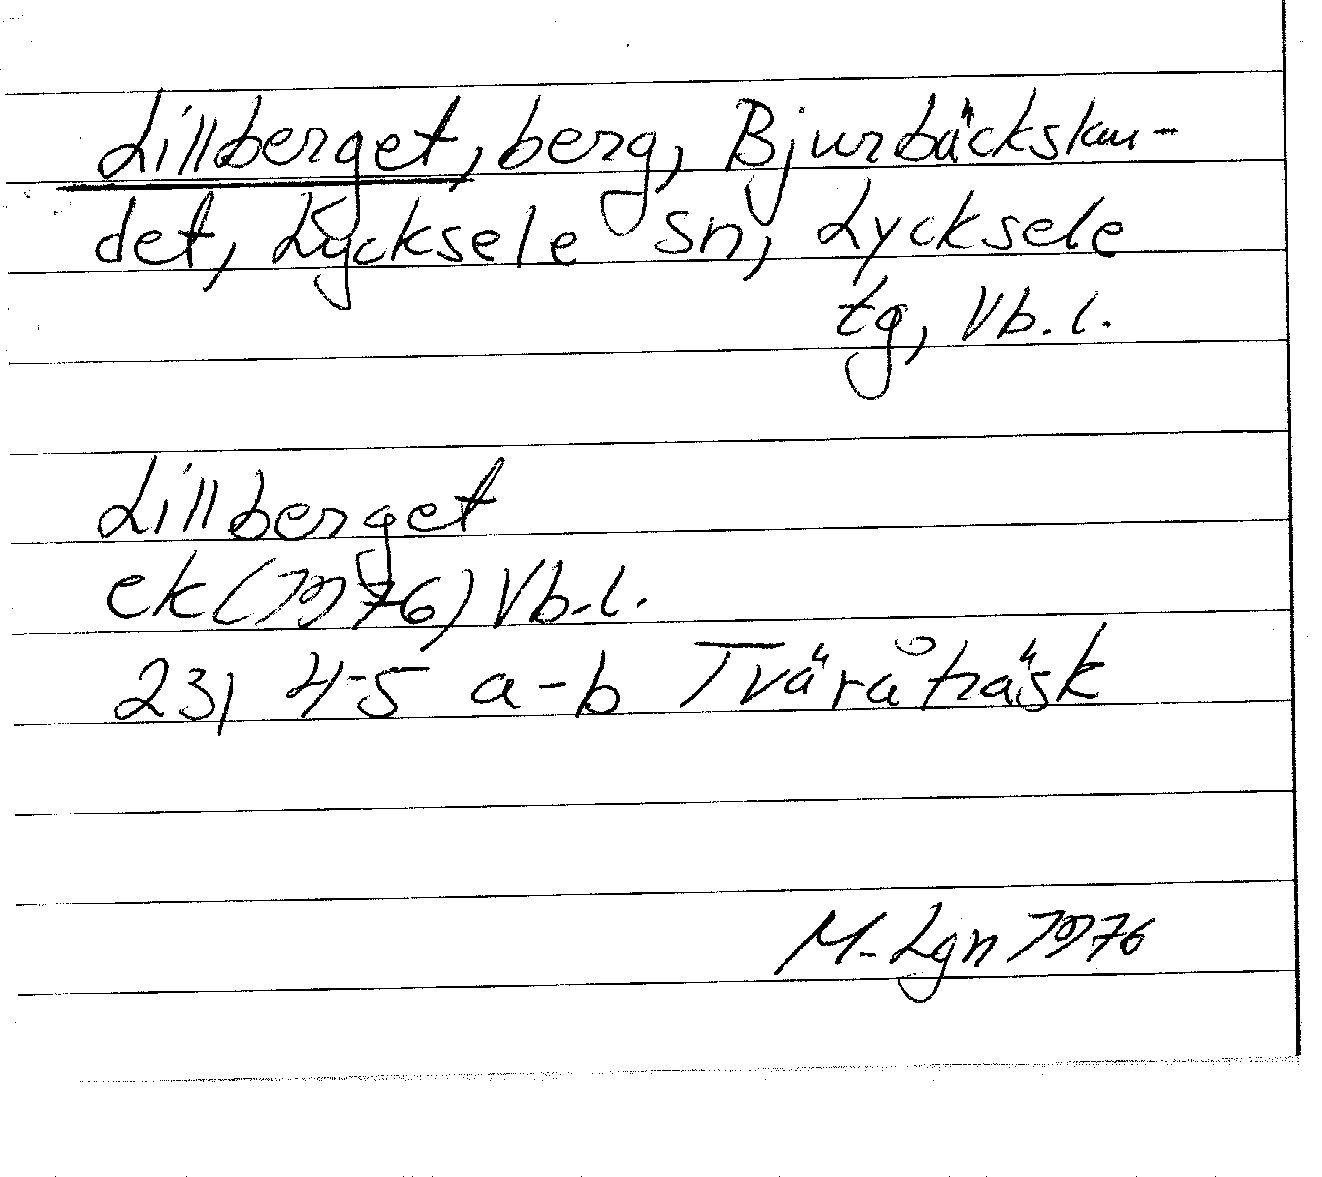 Lillberget, berg, Bjurbäckslan-
det, Lycksele sn, Lycksele
tg, Vb.l.
Lillberget
ek (1976) Vb.l.
23, 4-5 a-b Tväråträsk
M-Lgn 1976